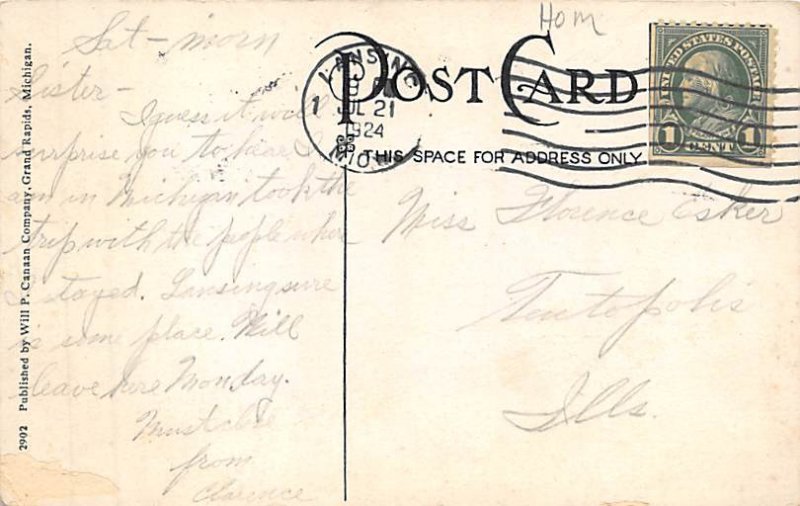 Hom
POST CARD
THIS SPACE FOR ADDRESS ONLY
LANSING
JUL 21
1924
MICH
1
UNITED STATES POSTAGE
1 CENT 1
2902 Published by Will P. Canaan Company, Grand Rapids, Michigan.
Sat - morn
Sister -
I guess it will
surprise you to hear I
am in Michigan took the
trip with the people where
I stayed. Lansing sure
is some place. Will
leave here Monday.
Must close
from
Clarence
Miss Florence Esker
Teutopolis
Ills.